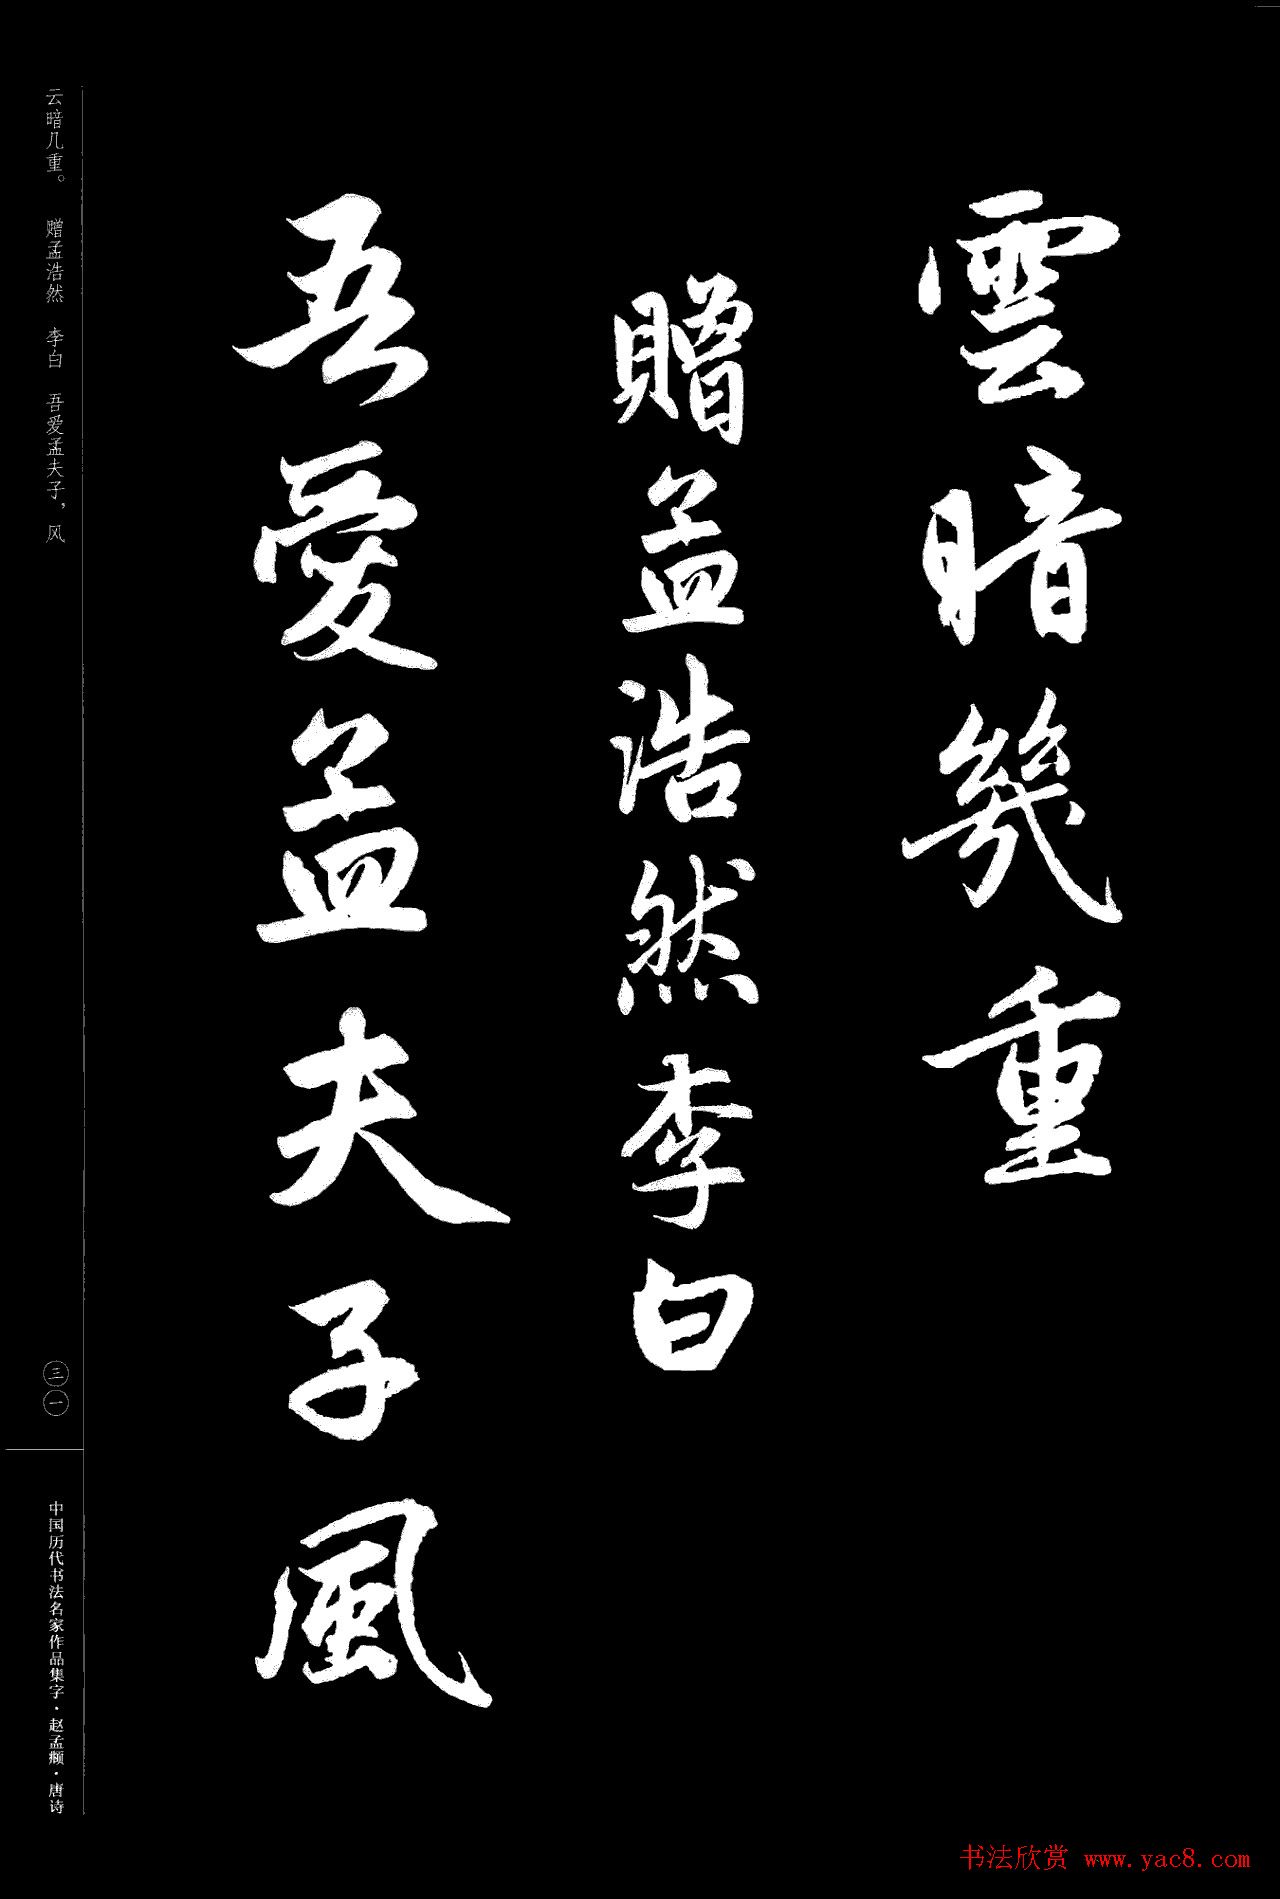 雲暗幾重
贈孟浩然李白
吾愛孟夫子風
云暗几重。 赠孟浩然 李白 吾爱孟夫子，风
三一
中国历代书法名家作品集字·赵孟頫·唐诗
书法欣赏 www.yac8.com